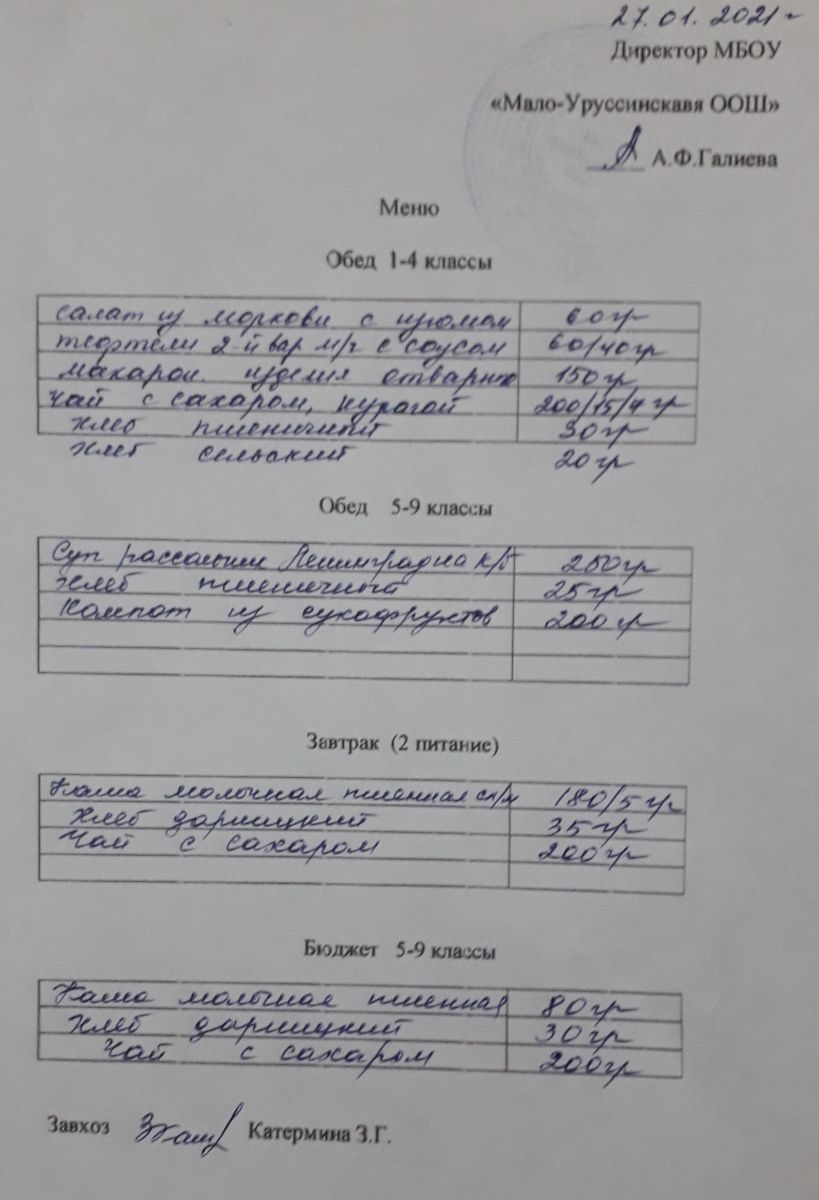 27.01.2021г
Директор МБОУ
«Мало-Уруссинскавя ООШ»
А.Ф.Галиева
Меню
Обед 1-4 классы
салат из моркови с изюмом 60гр
тефтели 2-й вар м/г с соусом 60/40гр
макарон. изделия отварные 150гр
чай с сахаром, курагой 200/15/4гр
хлеб пшеничный 30гр
хлеб сельский 20гр
Обед 5-9 классы
Суп рассольник Ленинград на к/б 250гр
хлеб пшеничный 25гр
Компот из сухофруктов 200гр
Завтрак (2 питание)
Каша молочная пшенная сл/м 180/5гр
Хлеб дарницкий 35гр
Чай с сахаром 200гр
Бюджет 5-9 классы
Каша молочная пшенная 80гр
Хлеб дарницкий 30гр
Чай с сахаром 200гр
Завхоз Катермина З.Г.